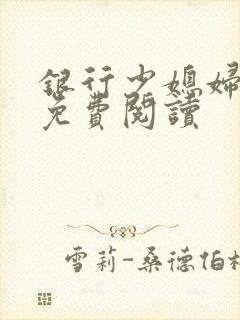 銀行少媳婦
免費閱讀
雪莉-桑德伯格